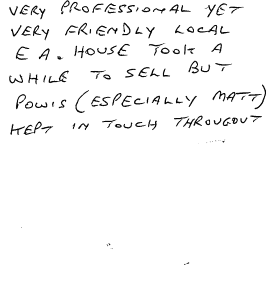 VERY PROFESSIONAL YET
VERY FRIENDLY LOCAL
E A. HOUSE TOOK A
WHILE TO SELL BUT
POWIS (ESPECIALLY MATT)
KEPT IN TOUCH THROUGOUT